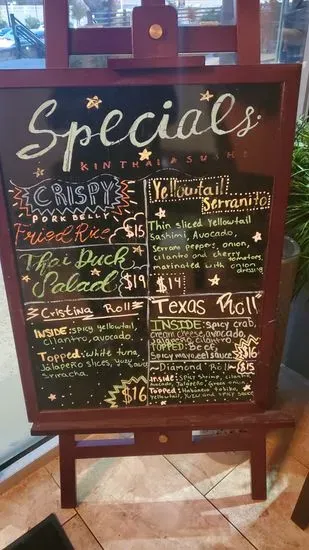 Specials
KIN THAI & SUSHI
CRISPY
PORK BELLY
Fried Rice $15
Thai Duck
Salad $19
Yellowtail
Serranito
Thin sliced Yellowtail
Sashimi, Avocado,
Serrano peppers, onion,
cilantro and cherry tomatoes,
marinated with onion
dressing
$14
Cristina Roll
INSIDE: spicy yellowtail,
cilantro, avocado
Topped: white tuna,
Jalapeño slices, yuzu sauce
Sriracha
$16
Texas Roll
INSIDE: spicy crab,
cream cheese, avocado,
jalapeño, cilantro
TOPPED: Beef,
Spicy mayo, eel sauce $16
~Diamond Roll~ $15
Inside: Spicy shrimp, cilantro,
avocado, Jalapeño, Green onion
Topped: Habanero tobiko,
Yellowtail, yuzu and spicy sauce